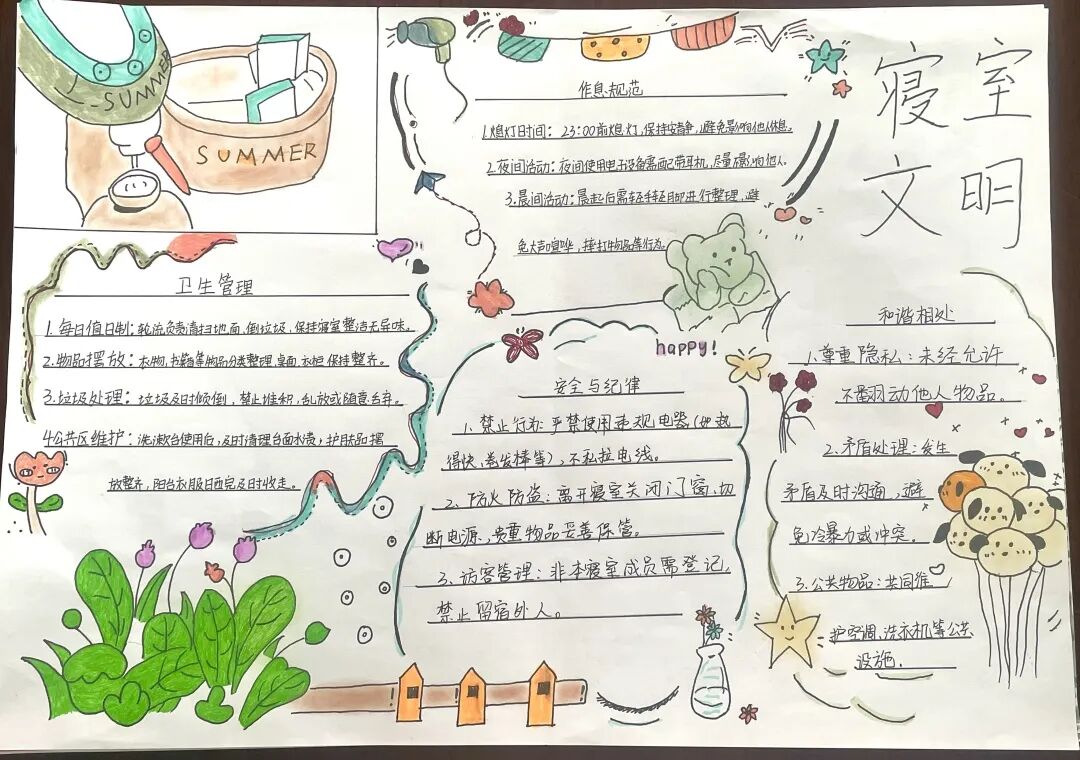 寝室
文明
SUMMER
SUMMER
作息规范
1.熄灯时间：23:00前熄灯，保持安静，避免影响他人休息。
2.夜间活动：夜间使用电子设备需配带耳机，尽量不影响他人。
3.晨间活动：晨起后需轻手轻脚进行整理，避
免大声喧哗，摔打物品等行为。
卫生管理
1.每日值日制：轮流负责清扫地面，倒垃圾，保持寝室整洁无异味。
2.物品摆放：衣物，书籍等物品分类整理，桌面，衣柜保持整齐。
3.垃圾处理：垃圾及时倾倒，禁止堆积，乱放或随意丢弃。
4.公共区维护：洗漱台使用后，及时清理台面水渍，护肤品摆
放整齐，阳台衣服晒完及时收走。
happy!
安全与纪律
1.禁止行为：严禁使用违规电器（如热
得快、卷发棒等），不私拉电线。
2.防火防盗：离开寝室关闭门窗，切
断电源，贵重物品妥善保管。
3.访客管理：非本寝室成员需登记，
禁止留宿外人。
和谐相处
1.尊重隐私：未经允许
不翻动他人物品。
2.矛盾处理：发生
矛盾及时沟通，避
免冷暴力或冲突。
3.公共物品：共同维
护空调、洗衣机等公共
设施.